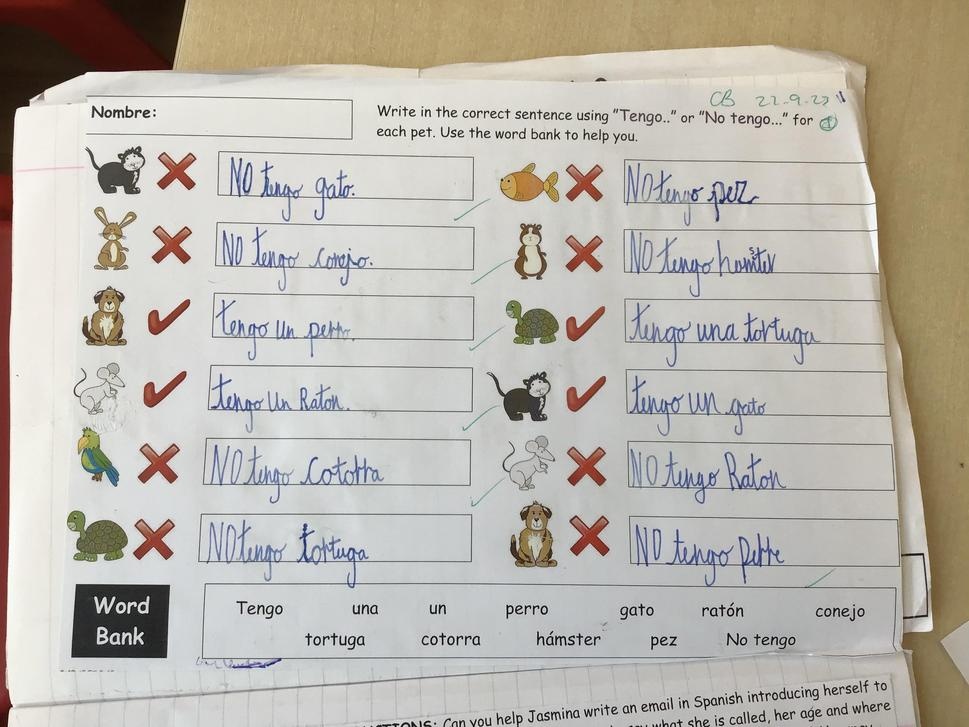 Nombre:
Write in the correct sentence using "Tengo.." or "No tengo..." for
each pet. Use the word bank to help you.
CB 22-9-23
NO tengo gato.
NO tengo pez
NO tengo conejo.
NO tengo hamster
tengo un perro.
tengo una tortuga
tengo un Raton.
tengo un gato
NO tengo cotorra
NO tengo Raton
NO tengo tortuga
NO tengo perre
Word
Bank
Tengo una un perro gato ratón conejo
tortuga cotorra hámster pez No tengo
Can you help Jasmina write an email in Spanish introducing herself to
what she is called, her age and where